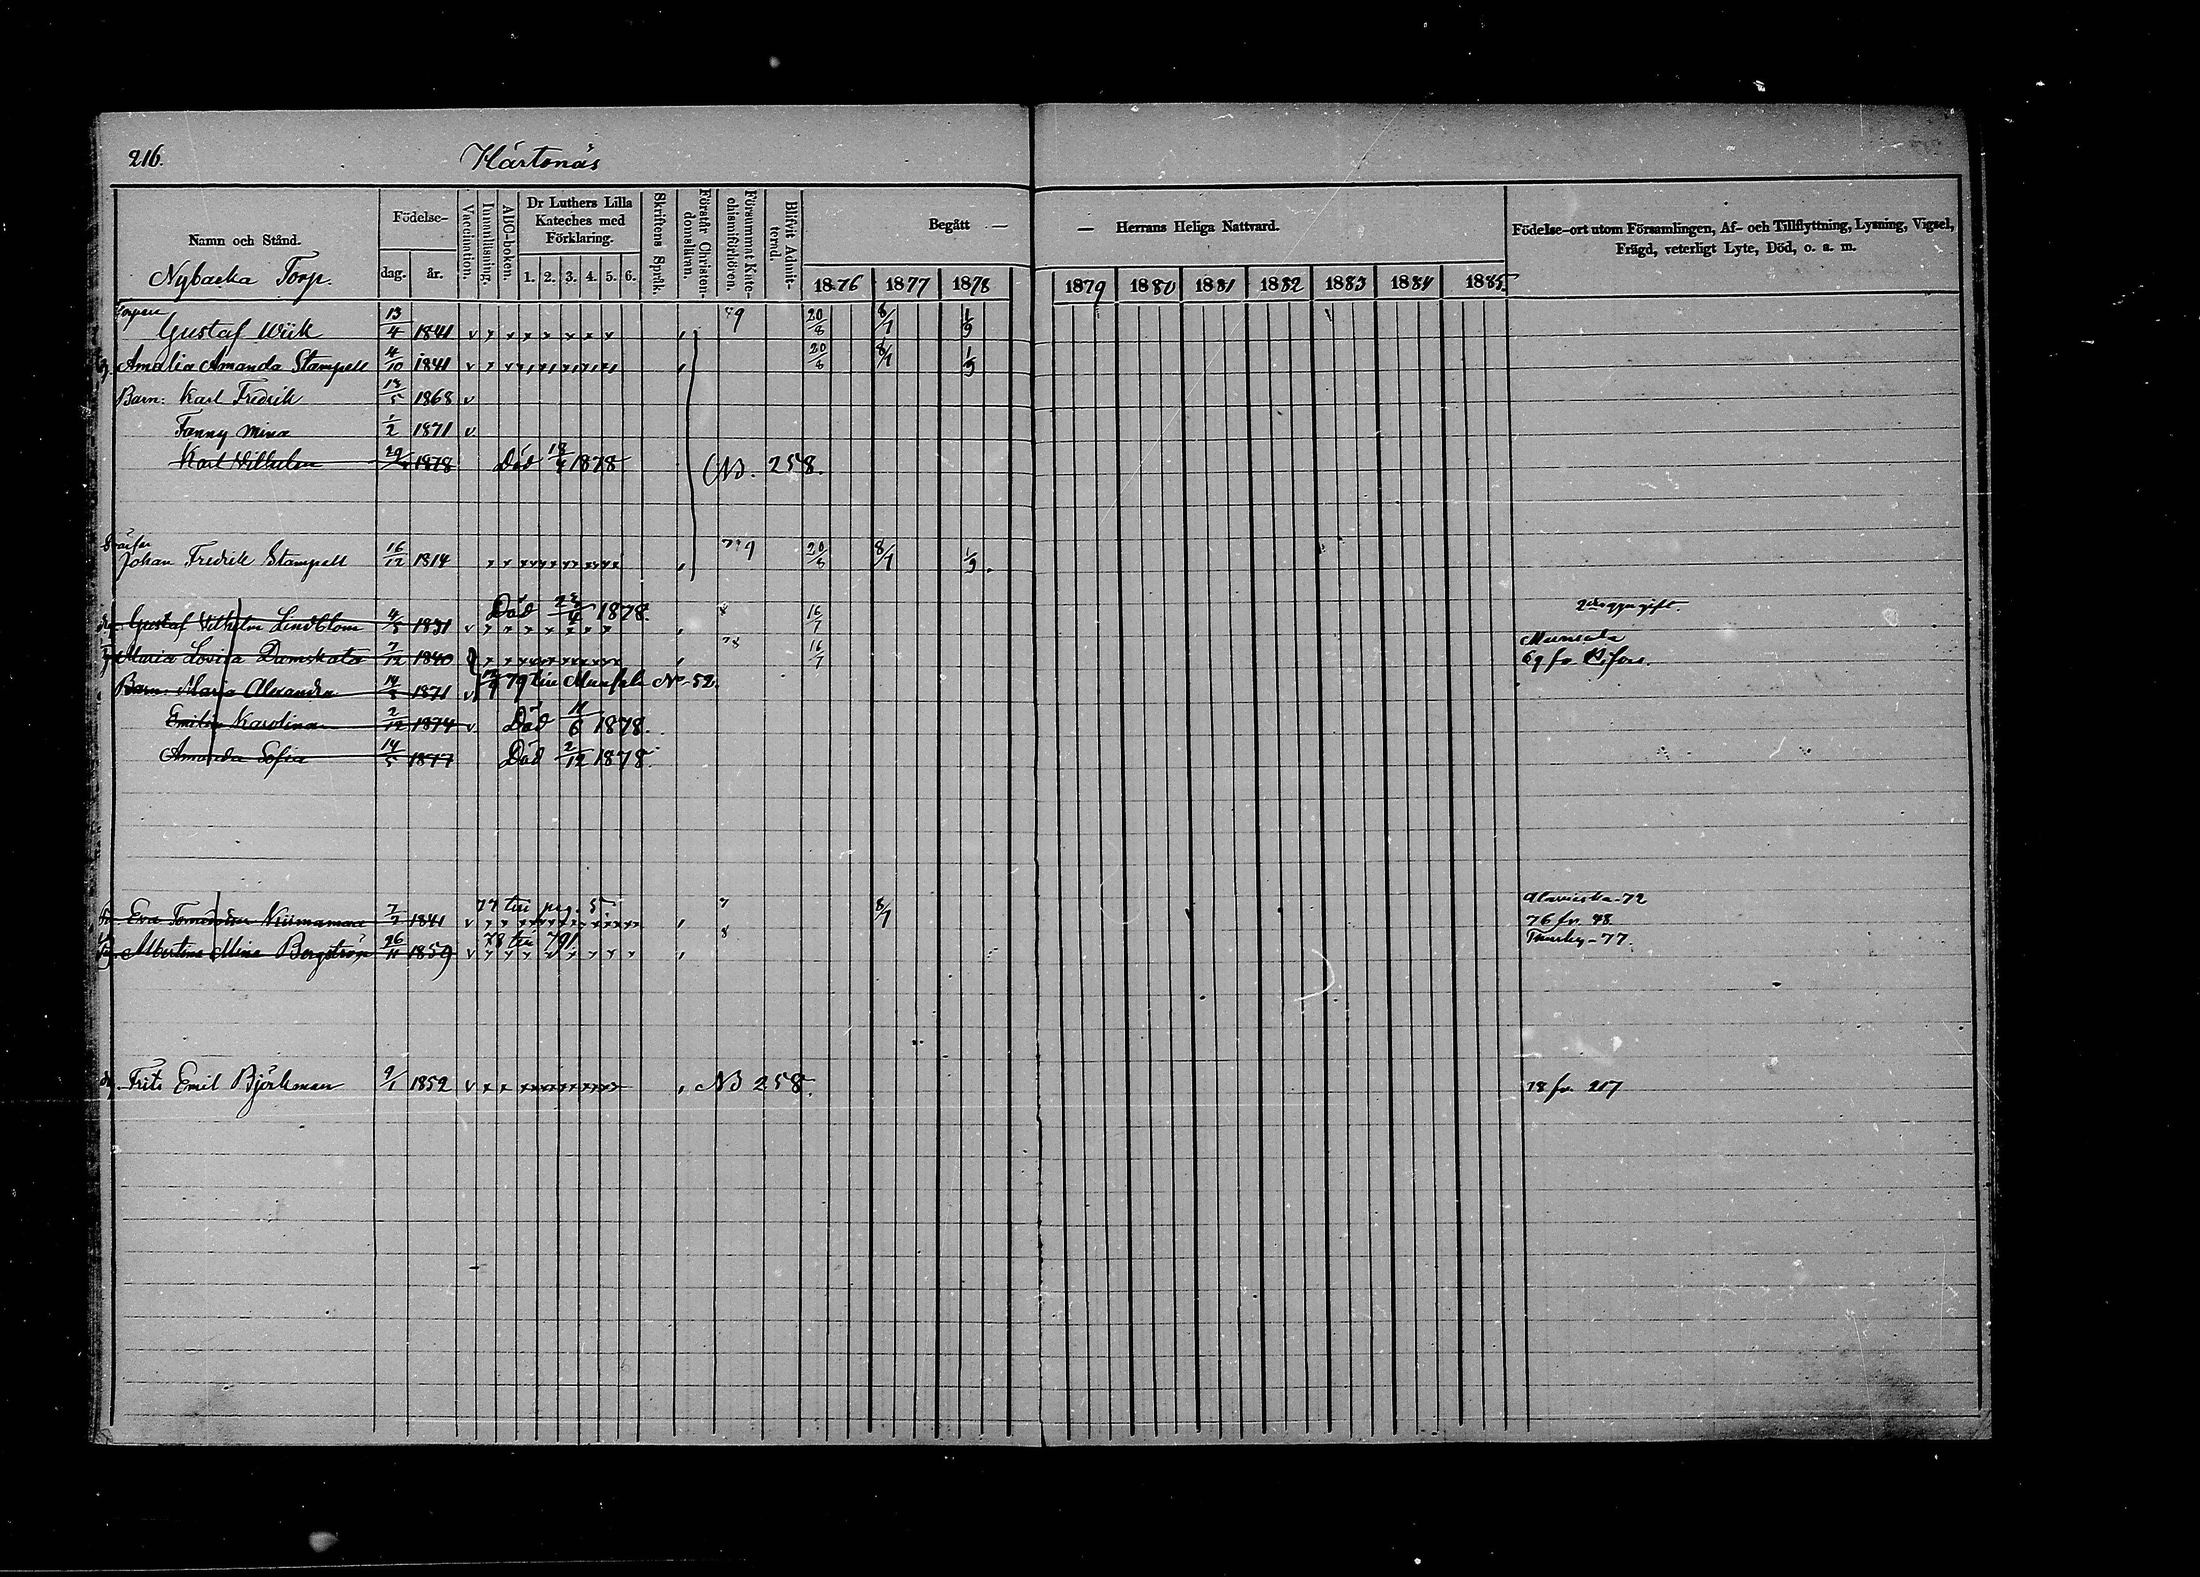 216.
Kärtonäs
Namn och Stånd.
Nybacka Torp.
Födelse-
dag.
år.
Vaccination.
Innanläsning.
ABC-boken.
Dr Luthers Lilla Kateches med Förklaring.
1. 2. 3. 4. 5. 6.
Skriftens Språk.
Förstår Christendomsläran.
Försummat Katechismiförhören.
Blifvit Admitterad.
Begått — — Herrans Heliga Nattvard.
1876 1877 1878 1879 1880 1881 1882 1883 1884 1885
Födelse-ort utom Församlingen, Af- och Tillflyttning, Lysning, Vigsel,
Frägd, veterligt Lyte, Död, o. a. m.
Gustaf Wiik 13/4 1841 v 79 20/8 8/7 1/9
Amalia Amanda Stampell 4/10 1841 v 20/8 8/7 1/9
Barn: Karl Fredrik 13/5 1868 v
Fanny Mina 1/2 1871 v
Karl Wilhelm 1878 Död 1878 No. 258.
Johan Fredrik Stampell 16/12 1814 20/8 8/7 1/9
Död 1878.
Gustaf Vilhelm Lindblom 4/5 1831 v 16/7 gift.
Munsala
Maria Lovisa Damskata 7/12 1840 78 16/7 69 fr
79 till Munsala No 52.
Barn: Maria Alexandra 14/5 1871 v
Emilia Karolina 2/12 1874 v Död 11/6 1878.
Amanda Sofia 14/5 1877 Död 2/12 1878.
77 till pag. 5
Alaviska-72
Eva 7/7 1841 v 8/7 76 fr. 48
78 till 791.
-77.
Albertina Mina Bergström 26/11 1859 v
Frits Emil Björkman 9/1 1852 v No 258. 78 fr 217